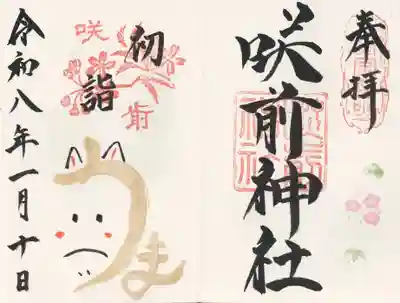 奉拝
咲前神社
初詣
咲
前
うま
令和八年一月十日